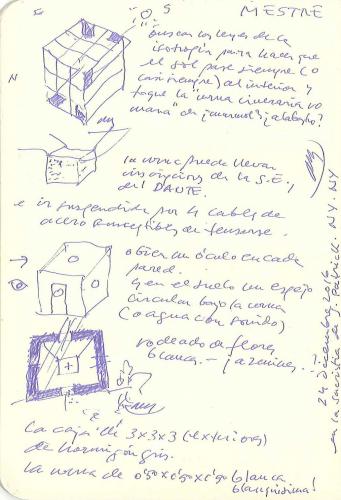 S
S
MESTRE
N
buscar las leyes de la
isotropía para hacer que
el sol pase siempre (o
casi siempre) al interior y
toque la "urna cineraria ro
mana" de ¿marmol? ¿alabastro?
la urna puede llevar
inscripciones de la S.E.,
del DANTE.
e ir suspendida por 4 cables de
acero susceptibles de tensarse.
abrir un óculo en cada
pared.
y en el suelo un espejo
circular bajo la urna
(o agua con fondo)
rodeado de flores
blancas.- jazmines...
La caja de 3x3x3 (exteriores)
de hormigón gris.
la urna de 0'50x0'50x0'50 blanca
blanquísima!
24 decembre 2016
en la sacristia de S. Patrick. NY. NY